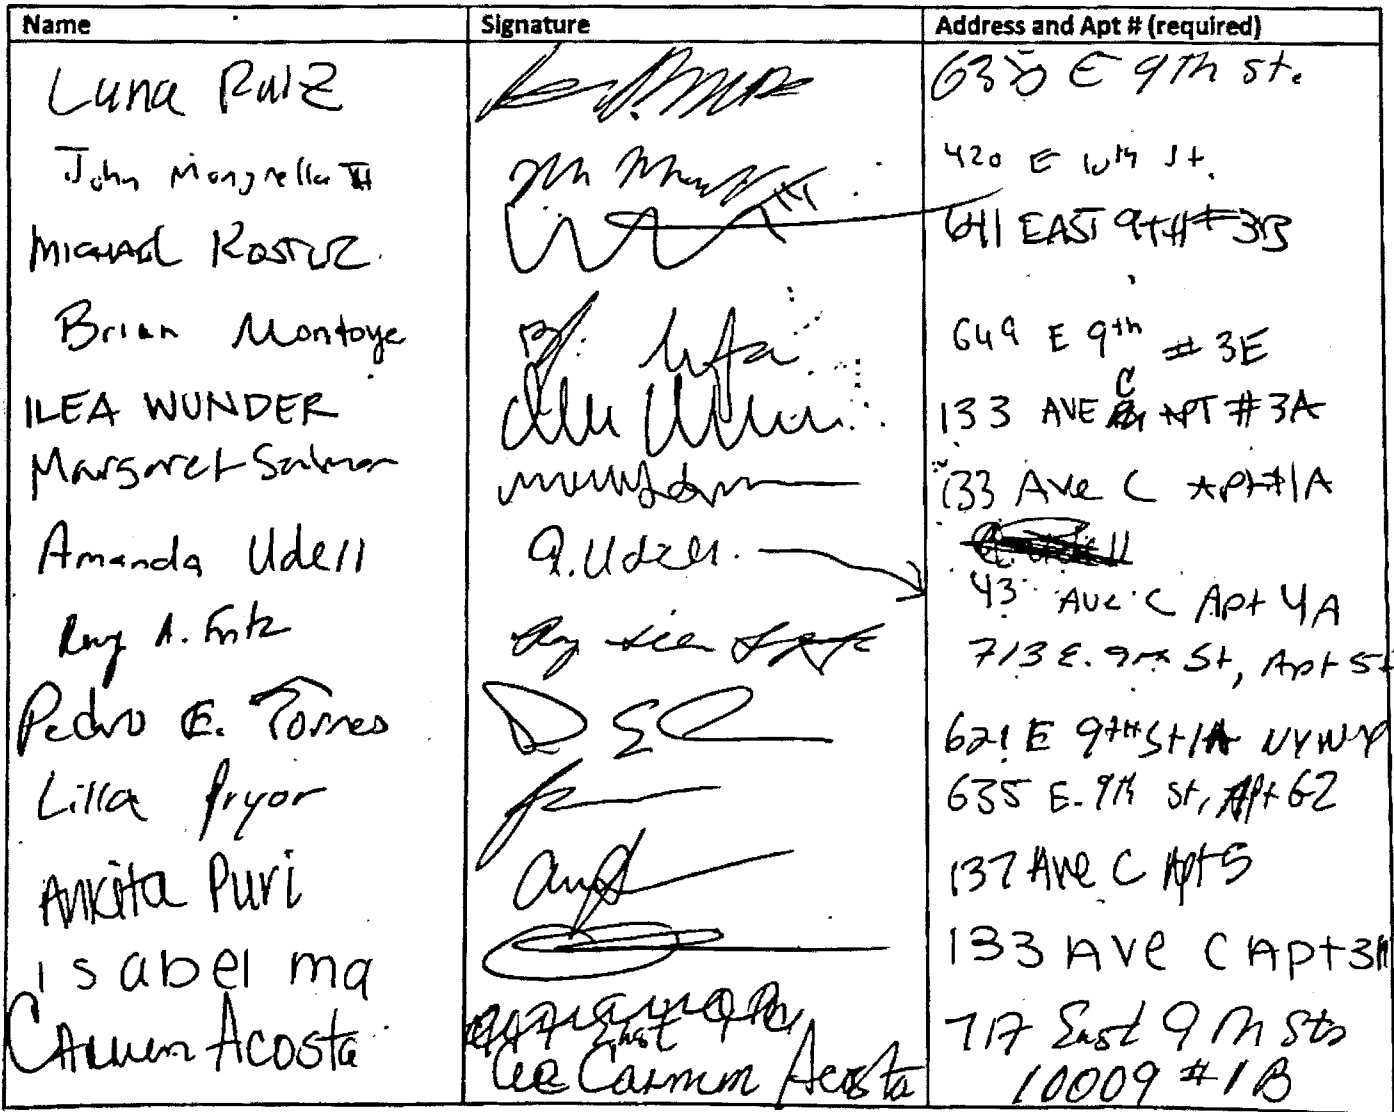 Name Signature Address and Apt # (required)
Luna Ruiz 635 E 9th St.
John Mongrella III 420 E 10th St.
MICHAEL 641 EAST 9TH #3B
Brian Montoya 649 E 9th #3E
ILEA WUNDER 133 AVE C APT #3A
Margaret Salmon 133 Ave C Apt #1A
Amanda Udell A. Udell
43 Ave C Apt 4A
A. Fritz 713 E. 9th St, Apt
Pedro E. Torres 621 E 9TH St 1A NY NY
Lilla Pryor 635 E. 9th St, Apt 62
Ankita Puri 137 Ave C Apt 5
isabel ma 133 Ave C Apt
Carmen Acosta 717 East 9th St
Carmen Acosta 10009 #1B